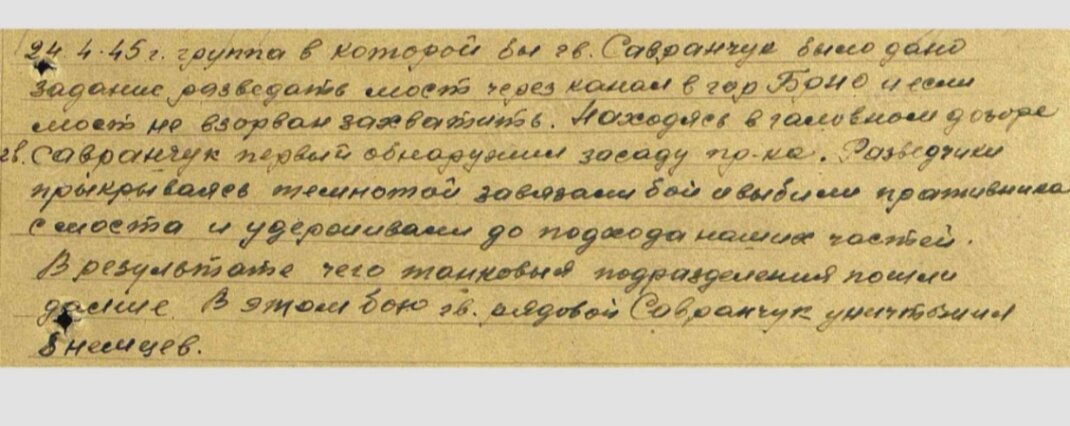 24.4.45г. группа в которой бы гв. Савранчук было дано
задание разведать мост через канал в гор Брно и если
мост не взорван захватить. Находясь в головном дозоре
гв. Савранчук первый обнаружил засаду пр-ка. Разведчики
прыкрываясь темнотой завязали бой и выбили пративника
с моста и удерживали до подхода наших частей.
В результате чего танковыя подразделения пошли
далше. В этом бою гв. рядовой Савранчук уничтожил
8 немцев.